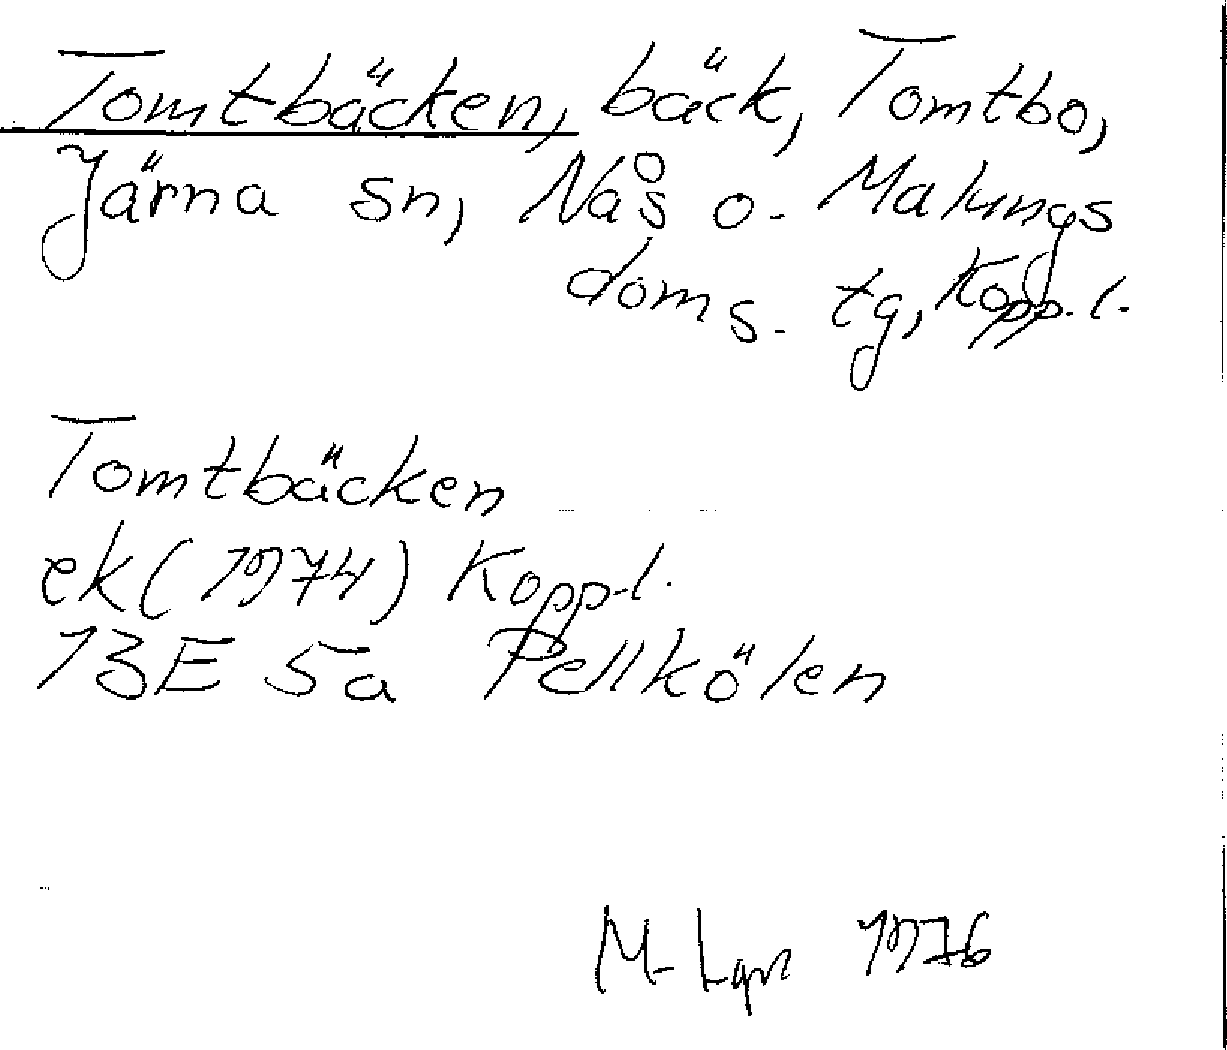 Tomtbäcken, bäck, Tomtbo,
Järna sn, Nås o. Malungs
doms. tg, Kopp. l.
Tomtbäcken
ek (1974) Kopp. l.
13E 5a Pellkölen
M. Lgn 1976